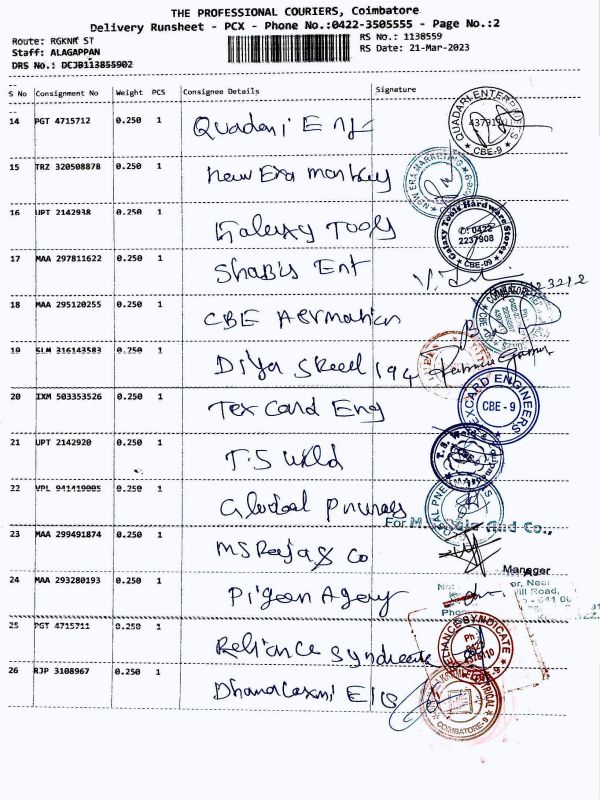 THE PROFESSIONAL COURIERS, Coimbatore
Delivery Runsheet - PCX - Phone No.:0422-3505555 - Page No.:2
Route: RGKNR ST
RS No.: 1138559
Staff: ALAGAPPAN
RS Date: 21-Mar-2023
DRS No.: DCJB113855902
S No Consignment No Weight PCS Consignee Details Signature
14 PGT 4715712 0.250 1 Quadari Ent
QUADARI ENTERPRISES CBE-9
15 TRZ 320508878 0.250 1 New Era
NEW ERA MARKETING
16 UPT 2142938 0.250 1 Galaxy Tools
Galaxy Tools Hardware Stores ✆: 0422 2237908 CBE-09
17 MAA 297811622 0.250 1 Shabis Ent
18 MAA 295120255 0.250 1 CBE
19 SLM 316143583 0.250 1 Diya Steel 194
20 IXM 503353526 0.250 1 Tex Card Eng
TEXCARD ENGINEERS CBE - 9
21 UPT 2142920 0.250 1 T.S Weld
22 VPL 941419005 0.250 1 Global
For And Co.,
23 MAA 299491874 0.250 1 MS Raja & Co
Manager
24 MAA 293280193 0.250 1 Pigeon Agency
25 PGT 4715711 0.250 1 Reliance Syndicate
RELIANCE SYNDICATE
26 RJP 3108967 0.250 1 Dhanalaxmi Ele
COIMBATORE-9